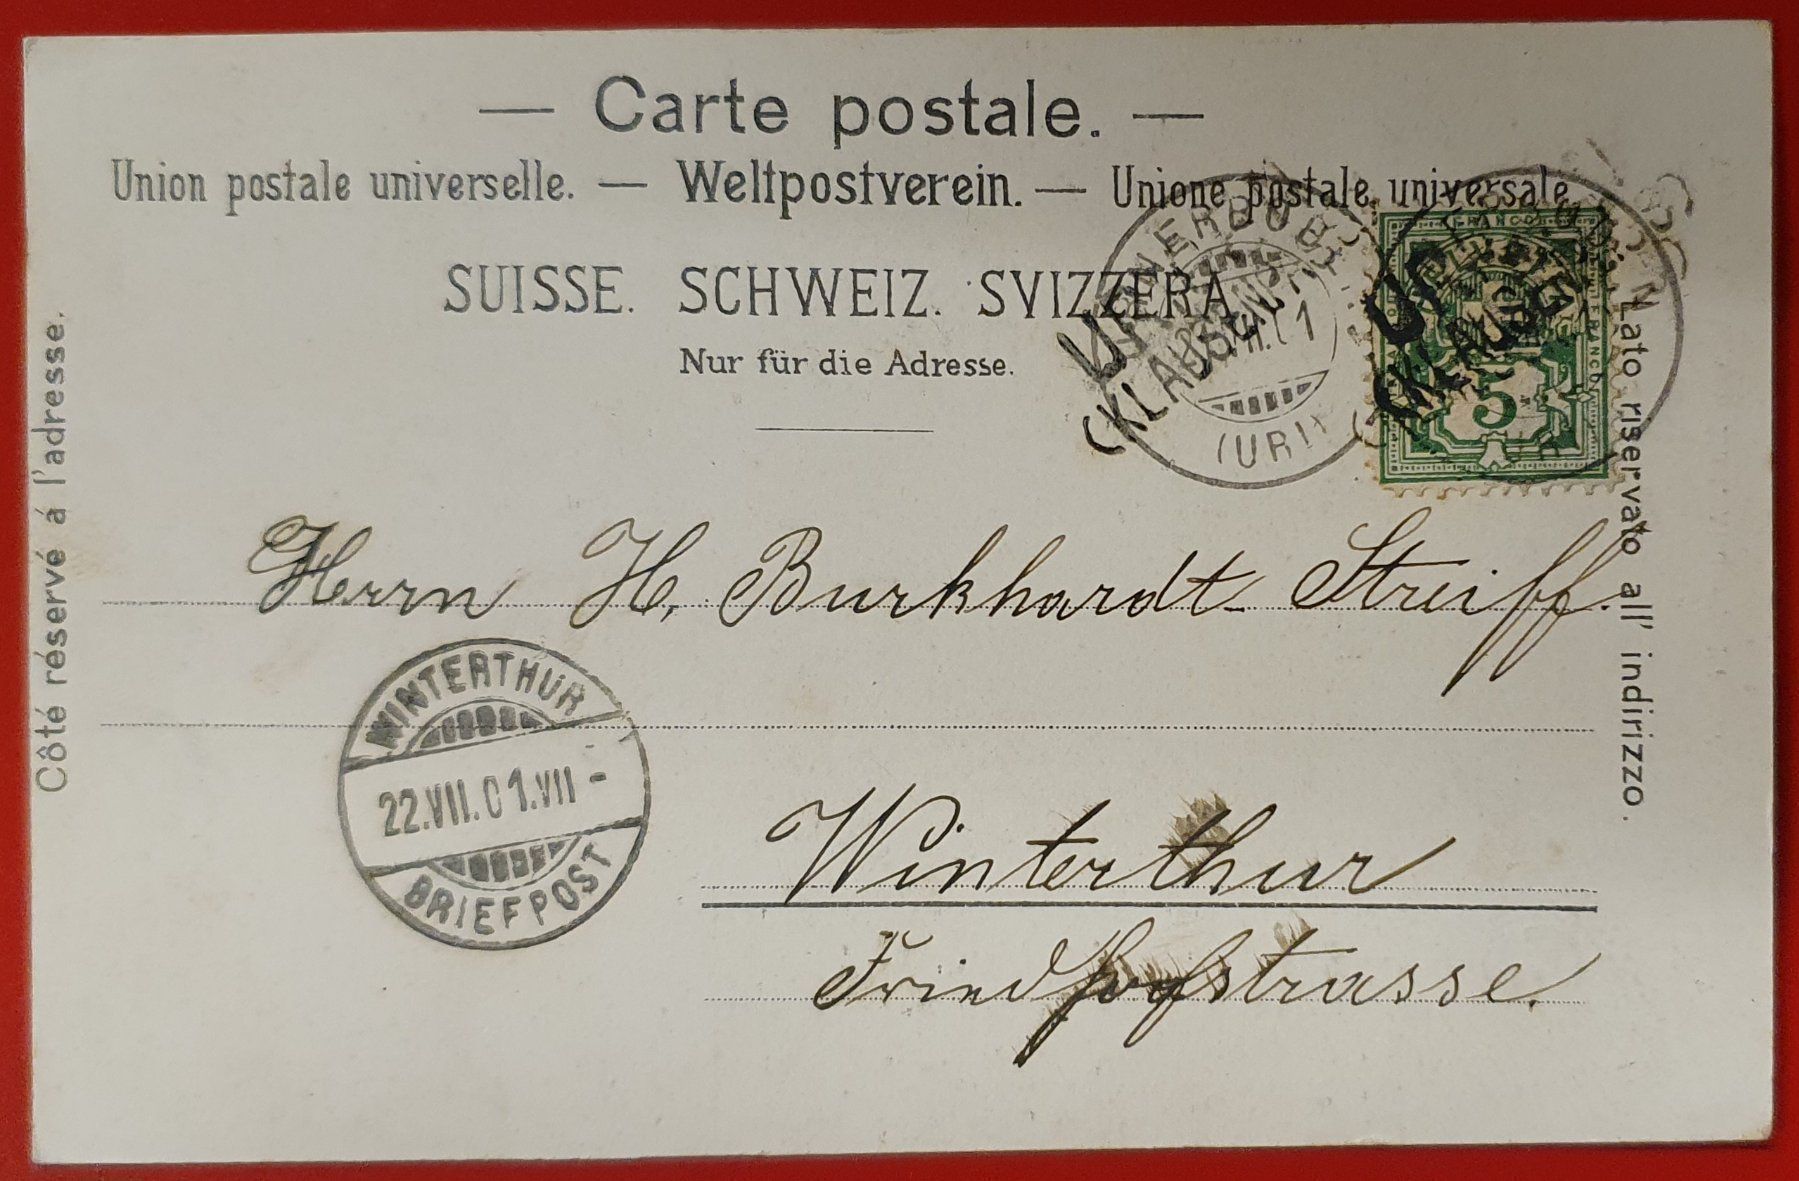 — Carte postale. —
Union postale universelle. — Weltpostverein. — Unione postale universale
SUISSE. SCHWEIZ. SVIZZERA
Nur für die Adresse.
Côté réservé á l'adresse.
Lato riservato all' indirizzo.
(URI)
FRANCO
5
Herrn H. Burkhardt-Streiff.
WINTERTHUR
22.VII.01.VII-
BRIEFPOST
Winterthur
Friedhofstrasse.